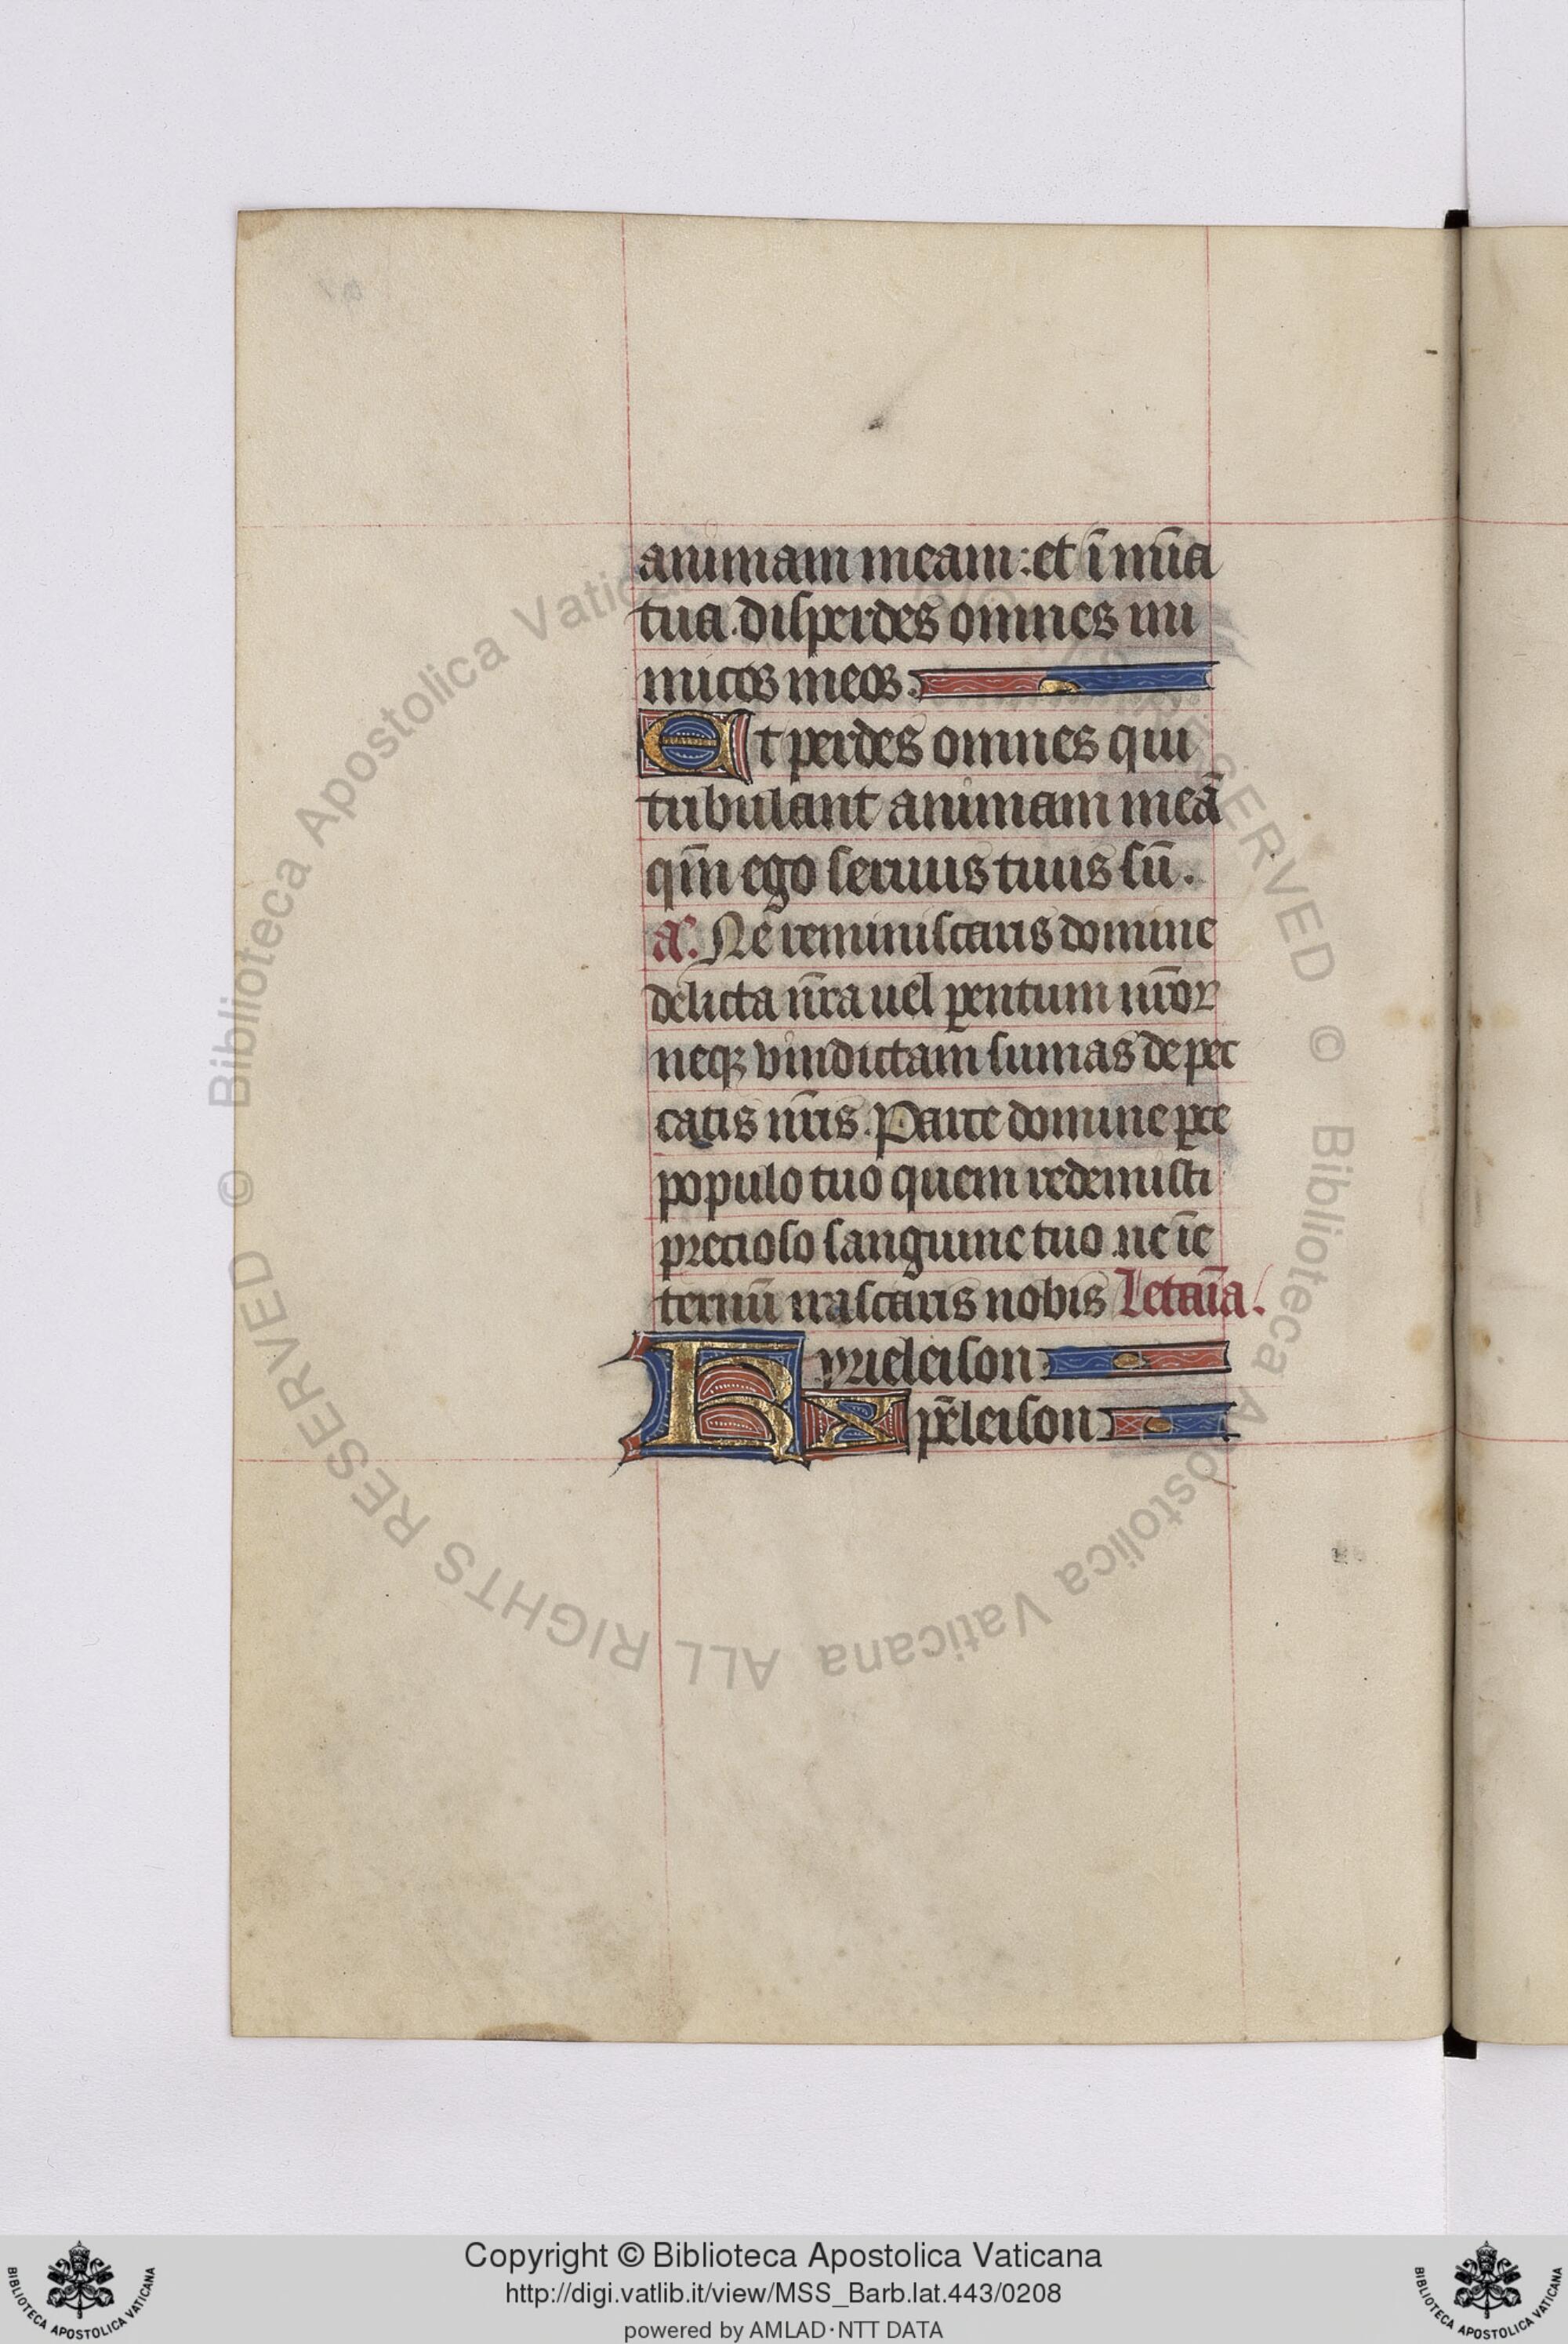 animam meam: et ī mīa
tua. disperdes omnes ini
micos meos.
Et perdes omnes qui
tribulant animam meā
qm̄ ego seruus tuus sū.
añ. Ne reminiscaris domine
delicta nr̄a uel parentum nr̄or
neqꝫ vindictam sumas de pec
catis nr̄is. Parce domine ꝑce
populo tuo quem redemisti
precioso sanguine tuo ne ī e
ternū irascaris nobis Letaīa.
Kyrieleison
Xp̄eleison
© Biblioteca Apostolica Vaticana ALL RIGHTS RESERVED
© Biblioteca Apostolica Vaticana ALL RIGHTS RESERVED
Copyright © Biblioteca Apostolica Vaticana
http://digi.vatlib.it/view/MSS_Barb.lat.443/0208
powered by AMLAD·NTT DATA
BIBLIOTECA APOSTOLICA VATICANA
BIBLIOTECA APOSTOLICA VATICANA